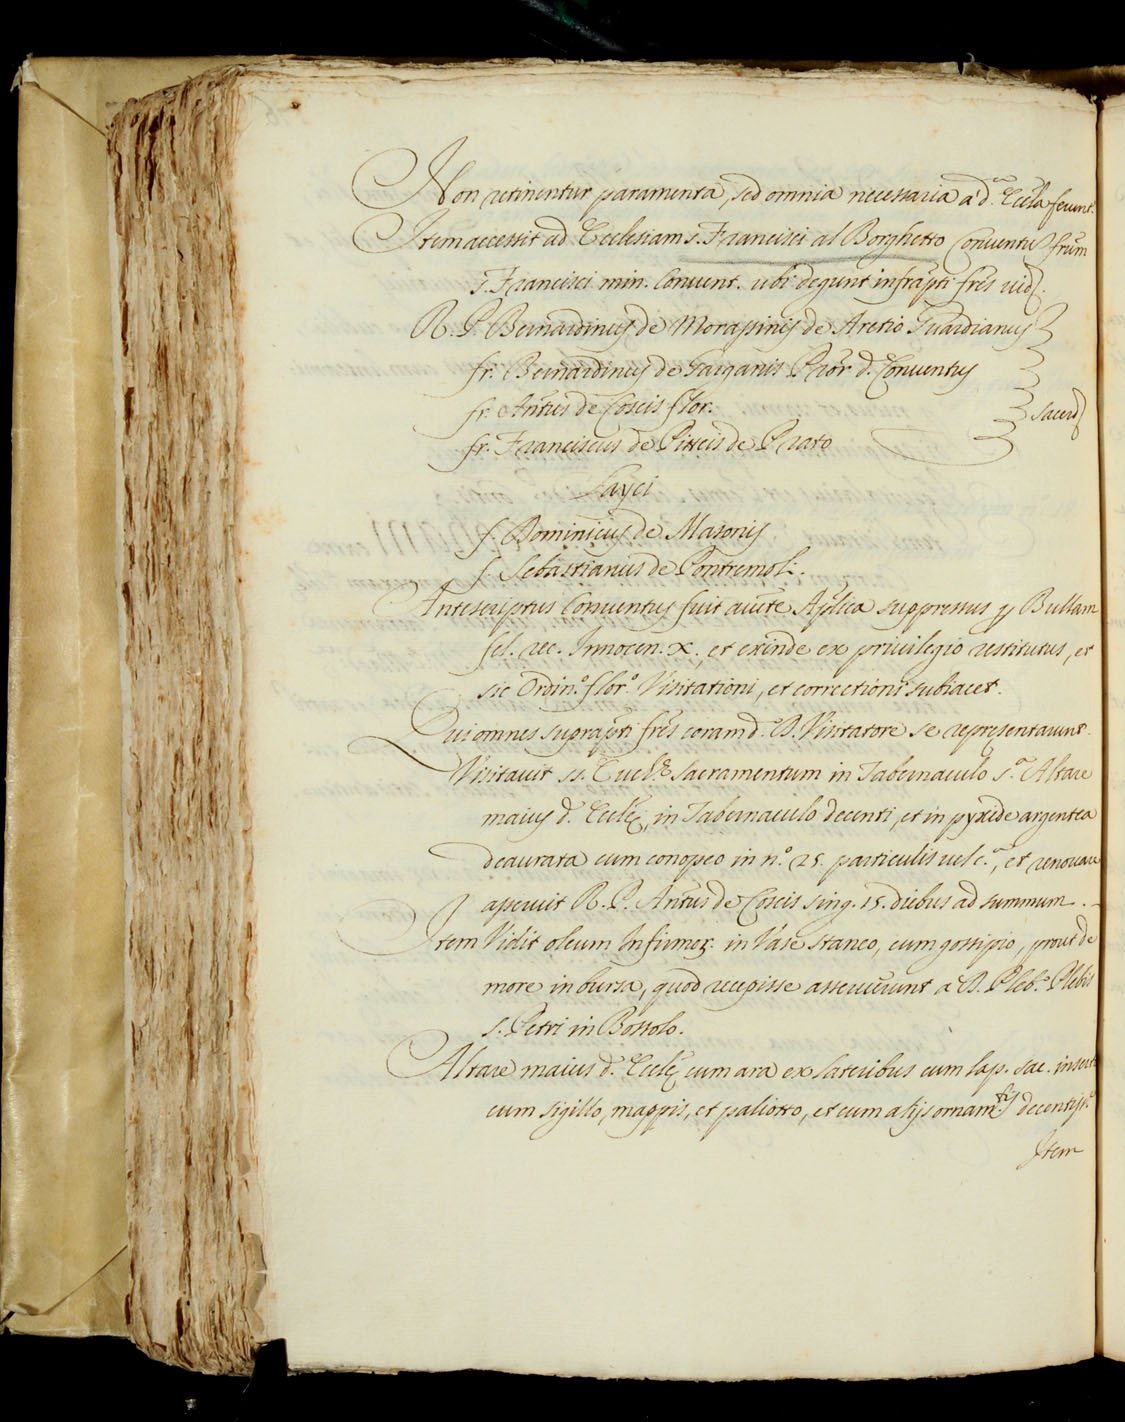 Non retinentur paramenta, sed omnia necessaria a d.ª Eccl̃a ferunt.
Item accessit ad Ecclesiam s. Francisci al Borghetto Conventus frum
s. Francisci min. Convent. ubi degunt infrap̃ti fr̃es vid.
R. P. Bernardinus de Morassinis de Aretio Guardianus
fr. Bernardinus de Garganis P̃ior d. Conventus
fr. Ant̃us de Coscis flor.
Sacerd.
fr. Franciscus de Pitteis de Prato
Layci
f. Dominicus de Masonis
f. Sebastianus de Pontremol:.
Antescriptus Conventus fuit aucte Ap̃lica suppressus p Bullam
fel. rec. Innocen. X., et exinde ex privilegio restitutus, et
sic Ordin.º flor.º Visitationi, et correctioni subiacet.
Qui omnes suprap̃ti fr̃es coram d. D. Visitatore se representarunt.
Visitavit ss. Euch.ᵉ sacramentum in Tabernaculo s.ª Altare
maius d. Eccl̃e, in Tabernaculo decenti, et in pyxide argentea
deaurata cum conopeo in n.º 25. particulis vel c.ª, et renovare
asseruit R. P. Ant̃us de Coscis sing. 15. diebus ad summum.
Item Vidit oleum Infirmor. in Vase staneo, cum gossipio, prout de
more in bursa, quod recepisse asseruerunt a D. Pleb.º Plebis
s. Petri in Bossolo.
Altare maius d. Eccl̃e cum ara ex lateribus cum lap. sac. inserto
cum sigillo, mappis, et paliotto, et cum alijs ornam.ᵗⁱˢ decentiss.ᵉ
Item